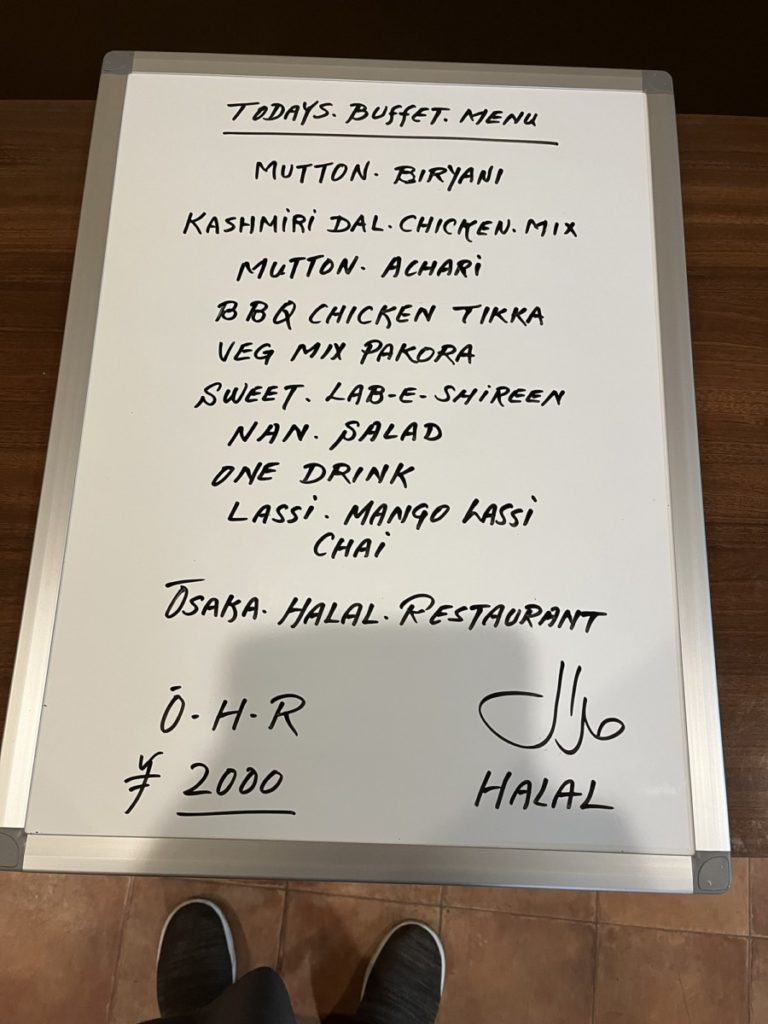 TODAYS. BUFFET. MENU
MUTTON. BIRYANI
KASHMIRI DAL. CHICKEN. MIX
MUTTON. ACHARI
BBQ CHICKEN TIKKA
VEG MIX PAKORA
SWEET. LAB-E-SHIREEN
NAN. SALAD
ONE DRINK
LASSI. MANGO LASSI
CHAI
OSAKA. HALAL. RESTAURANT
O.H.R
حلال
¥ 2000
HALAL